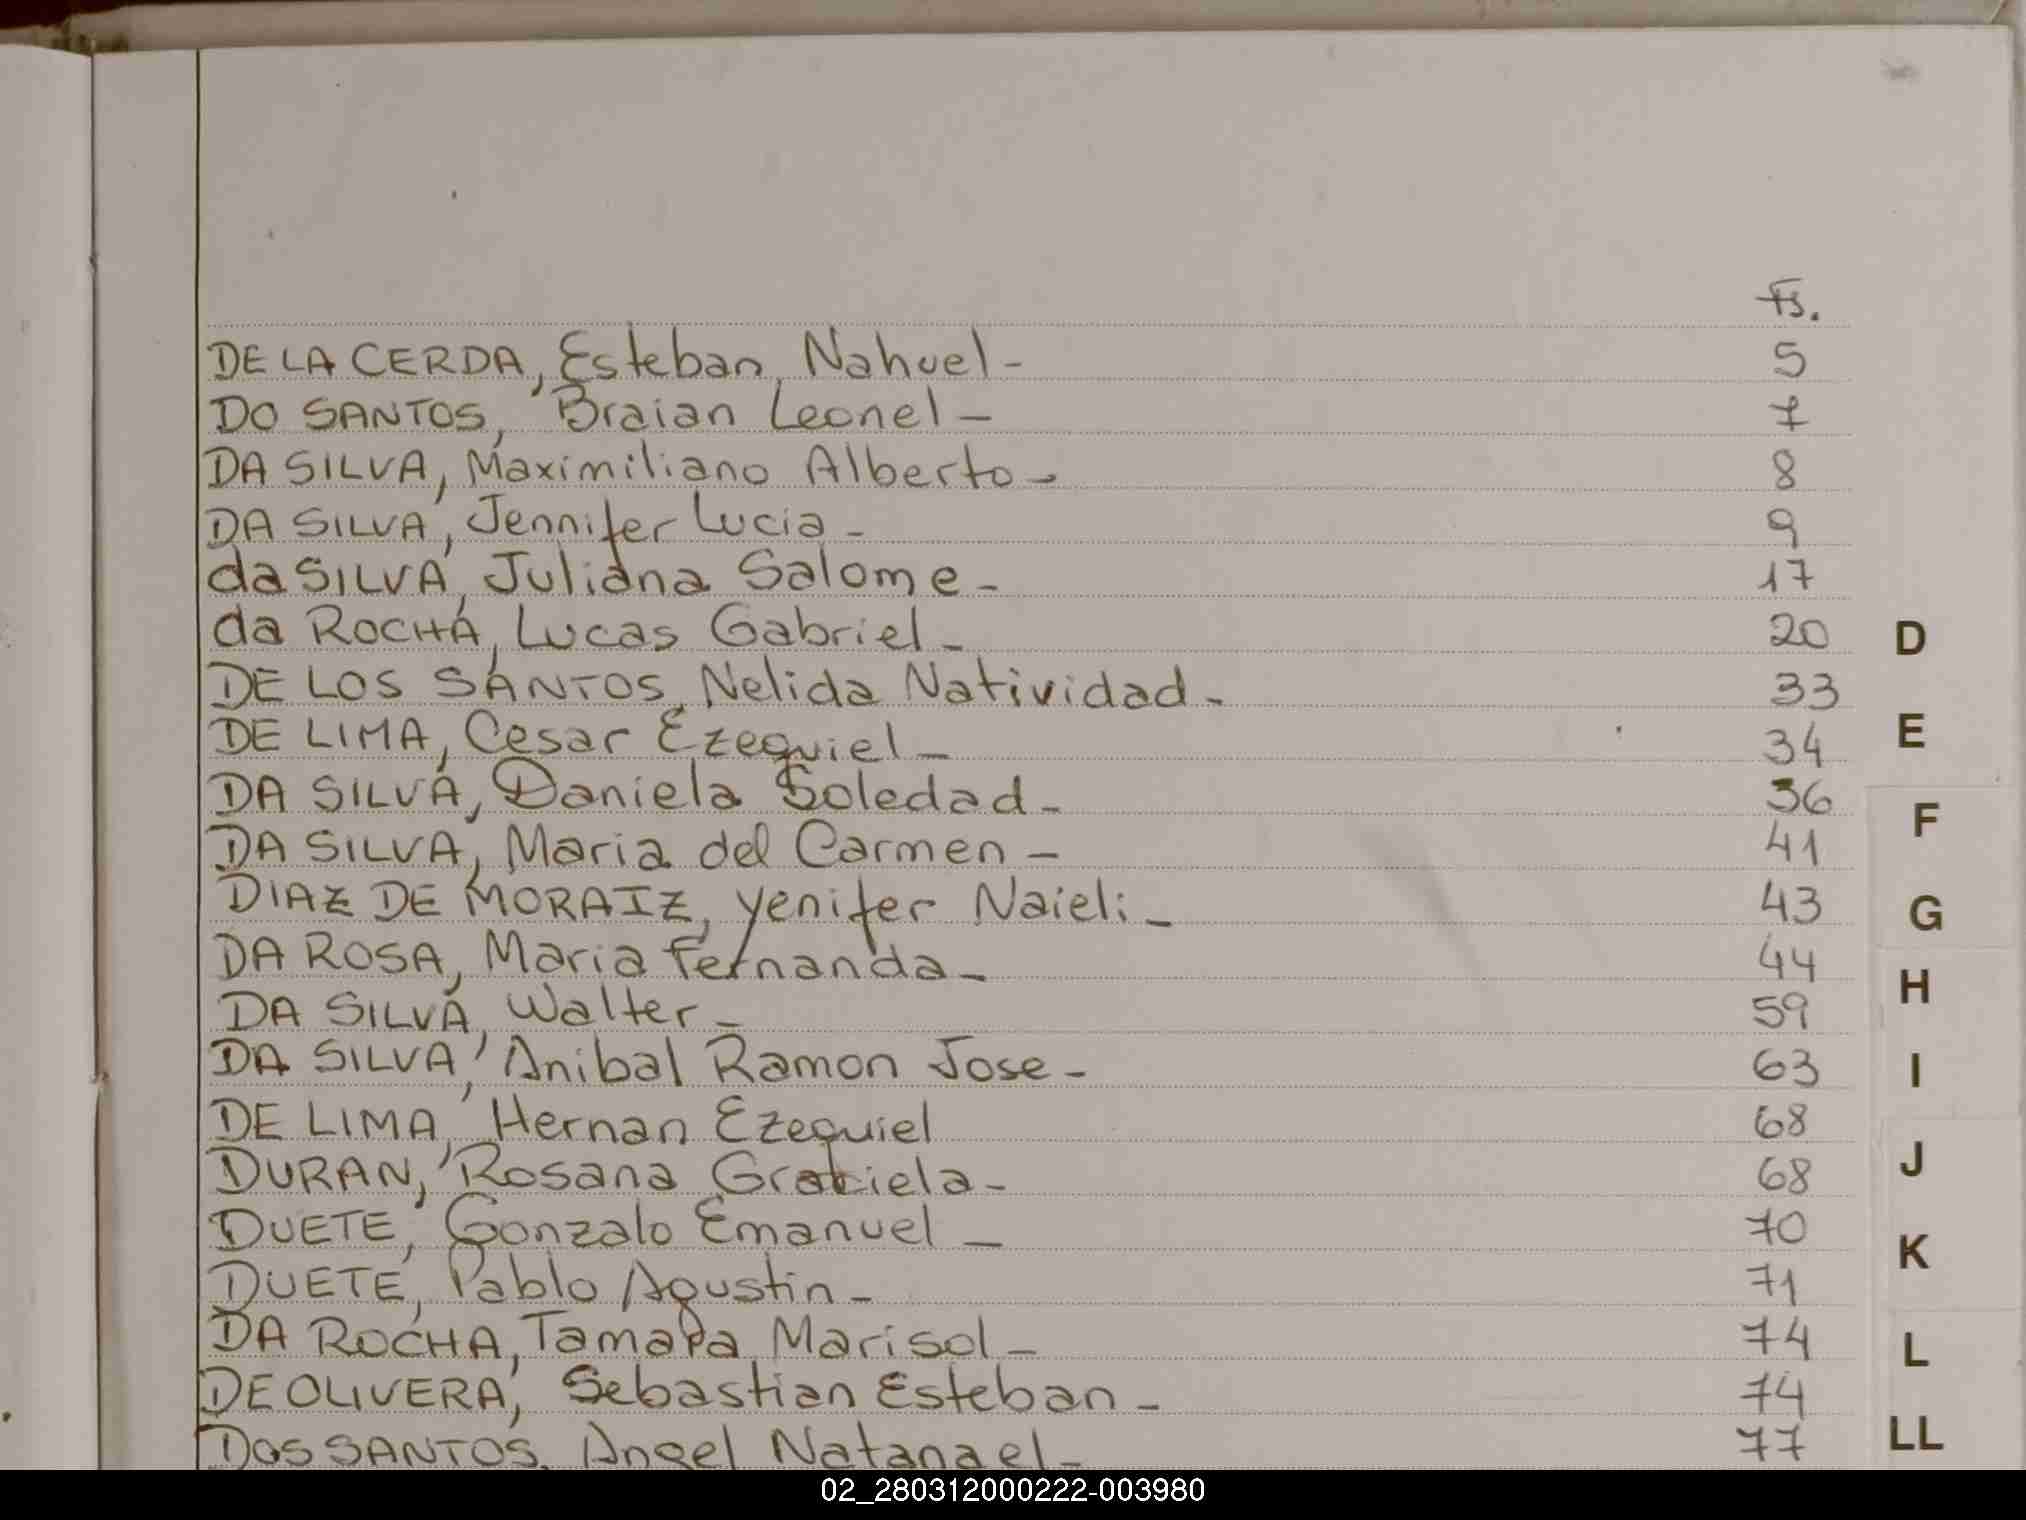 Fs.
DE LA CERDA, Esteban Nahuel - 5
DO SANTOS, Braian Leonel - 7
DA SILVA, Maximiliano Alberto - 8
DA SILVA, Jennifer Lucia - 9
da SILVA, Juliana Salome - 17
da ROCHA, Lucas Gabriel - 20
D
DE LOS SANTOS, Nelida Natividad - 33
DE LIMA, Cesar Ezequiel - 34
E
DA SILVA, Daniela Soledad - 36
F
DA SILVA, Maria del Carmen - 41
DIAZ DE MORAIZ, Yenifer Naieli - 43
G
DA ROSA, Maria Fernanda - 44
H
DA SILVA, Walter - 59
DA SILVA, Anibal Ramon Jose - 63
I
DE LIMA, Hernan Ezequiel 68
DURAN, Rosana Grabiela - 68
J
DUETE, Gonzalo Emanuel - 70
K
DUETE, Pablo Agustin - 71
DA ROCHA, Tamara Marisol - 74
L
DE OLIVERA, Sebastian Esteban - 74
DOS SANTOS, Angel Natanael - 77
LL
02_280312000222-003980